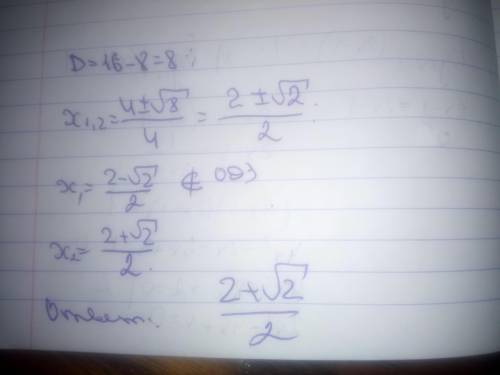 D=16-8=8;
x₁,₂= (4±√8)/4 = (2±√2)/2.
x₁= (2-√2)/2 ∉ ОДЗ
x₂= (2+√2)/2.
Ответ: (2+√2)/2